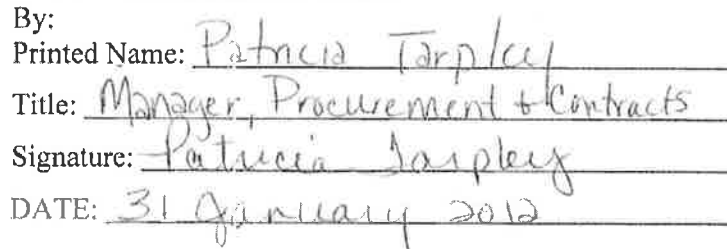 By:
Printed Name: Patricia Tarpley
Title: Manager, Procurement & Contracts
Signature: Patricia Tarpley
DATE: 31 January 2012